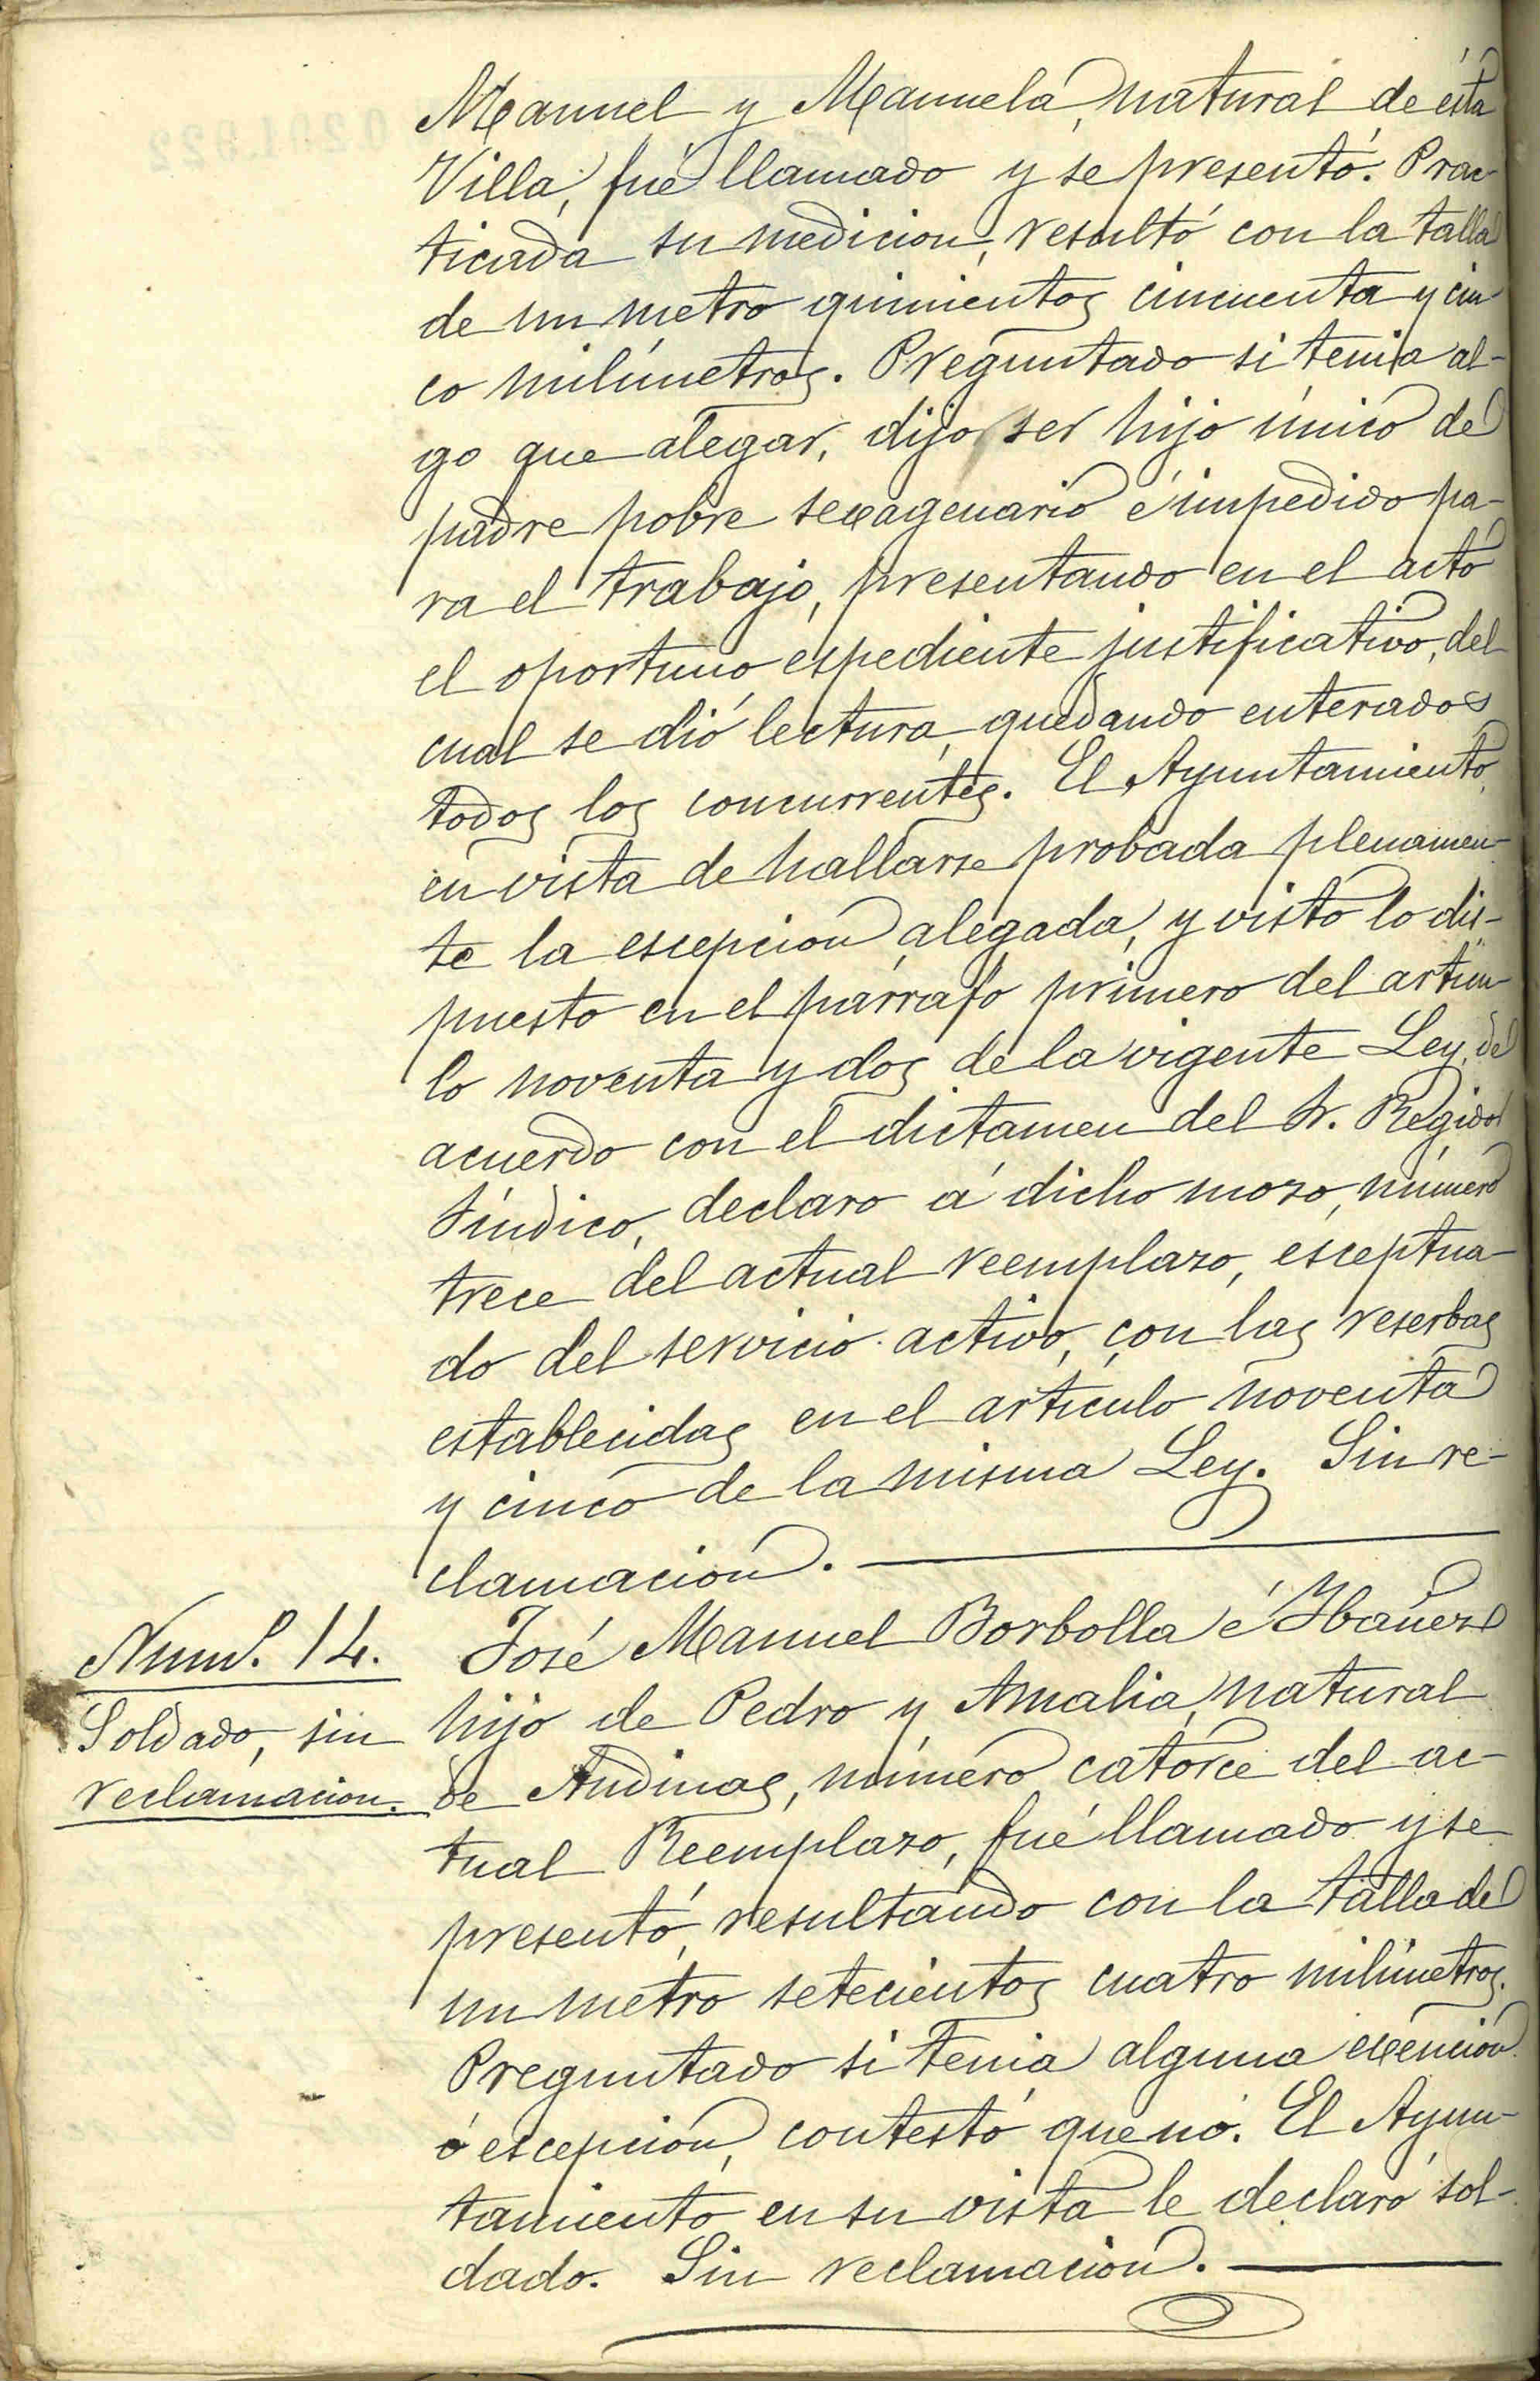 Manuel y Manuela, natural de ésta
Villa, fué llamado y se presentó. Prac-
ticada su medicion, resultó con la talla
de un metro quinientos cincuenta y cin-
co milímetros. Preguntado si tenia al-
go que alegar, dijo ser hijo único de
padre pobre sexagenario é impedido pa-
ra el trabajo, presentando en el acto
el oportuno espediente justificativo, del
cual se dió lectura, quedando enterados
todos los concurrentes. El Ayuntamiento,
en vista de hallarse probada plenamen-
te la escepcion alegada, y visto lo dis-
puesto en el párrafo primero del artícu-
lo noventa y dos de la vigente Ley, de
acuerdo con el dictamen del Sr. Regidor
Síndico, declaro á dicho mozo, número
trece del actual reemplazo, esceptua-
do del servicio activo, con las reserbas
establecidas en el artículo noventa
y cinco de la misma Ley. Sin re-
clamacion.
Num.º 14.
Soldado, sin
reclamacion.
José Manuel Borbolla é Ybañez
hijo de Pedro y Amalia, natural
de Andinas, número catorce del ac-
tual Reemplazo, fué llamado y se
presentó, resultando con la talla de
un metro setecientos cuatro milímetros.
Preguntado si tenia alguna exencion
ó escepcion, contestó que nó. El Ayun-
tamiento en su vista le declaró sol-
dado. Sin reclamacion.